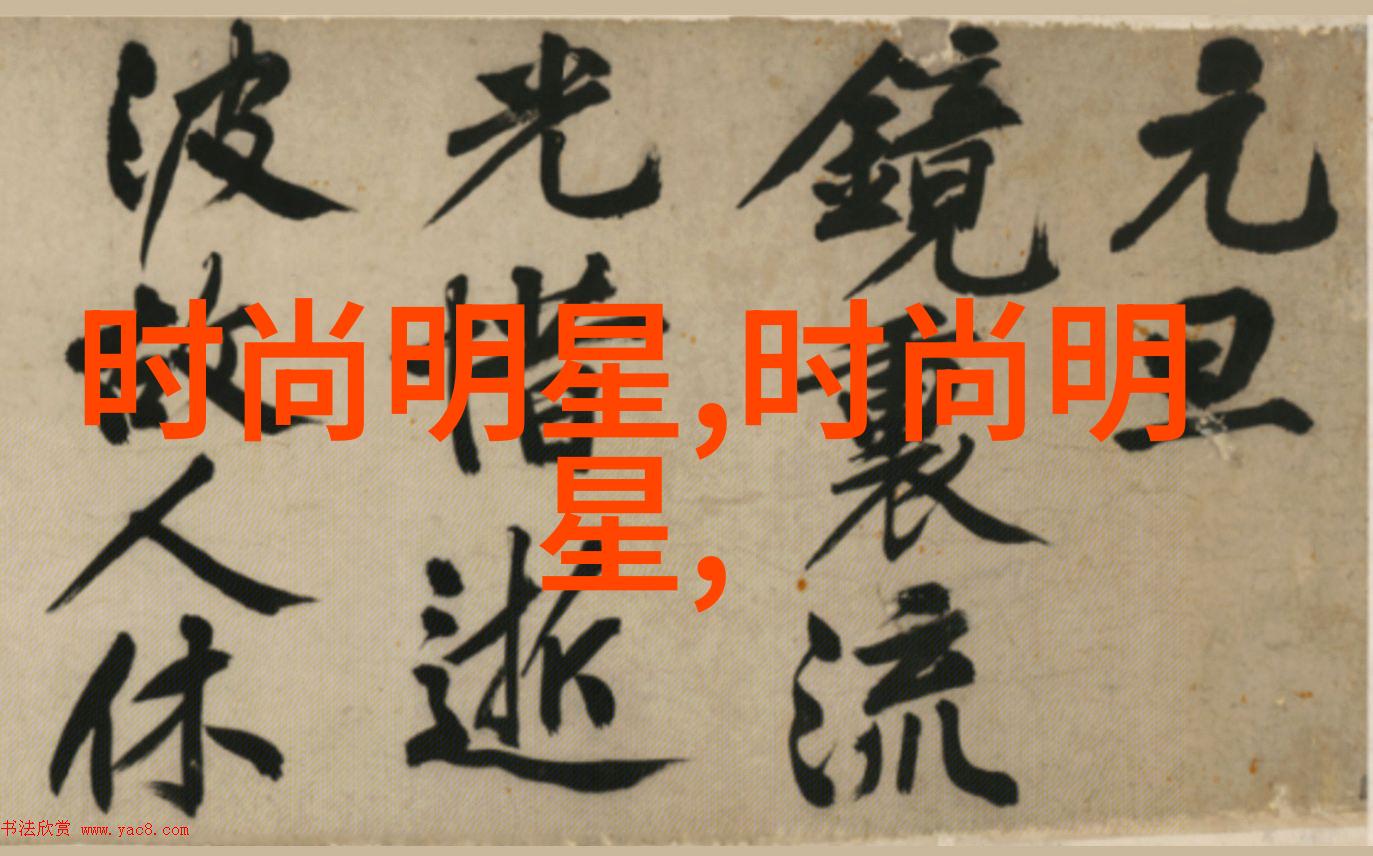 元旦
鏡裏流
光惜逝
波故人休
时尚明星,时尚明
星,
书法欣赏 www.yac8.com